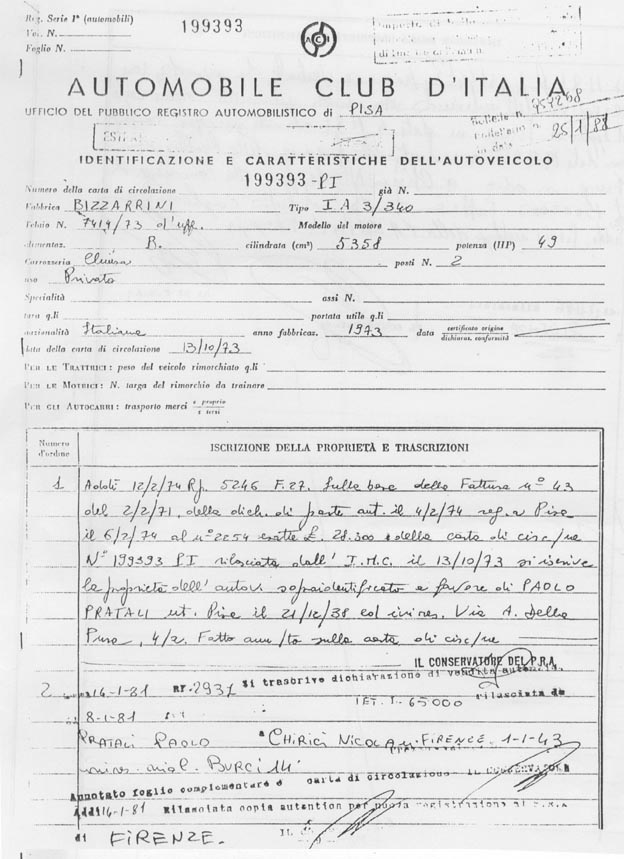 Reg. Serie 1ª (automobili)
Vol. N.
Foglio N.
199393
ACI
AUTOMOBILE CLUB D'ITALIA
UFFICIO DEL PUBBLICO REGISTRO AUTOMOBILISTICO di PISA
Bollette n. 957258
in data 25/1/88
IDENTIFICAZIONE E CARATTERISTICHE DELL'AUTOVEICOLO
199393-PI
Numero della carta di circolazione già N.
Fabbrica BIZZARRINI Tipo I A 3/340
Telaio N. 7419/73 d'uff. Modello del motore
alimentaz. B. cilindrata (cm³) 5358 potenza (HP) 49
Carrozzeria Chiusa posti N. 2
uso Privato
Specialità assi N.
tara q.li portata utile q.li
nazionalità Italiana anno fabbricaz. 1973 data certificato origine
dichiaz. conformità
data della carta di circolazione 13/10/73
PER LE TRATTRICI: peso del veicolo rimorchiato q.li
PER LE MOTRICI: N. targa del rimorchio da trainare
PER GLI AUTOCARRI: trasporto merci e proprio
e terzi
Numero d'ordine
ISCRIZIONE DELLA PROPRIETÀ E TRASCRIZIONI
1 Addì 12/2/74 Rf. 5246 F.27. Sulla base della Fattura n° 43
del 2/2/71, della dich. di parte aut. il 4/2/74 reg. a Pisa
il 6/2/74 al n° 2254 esatte £. 28.300 e della carta di circ/ne
N° 199393 PI rilasciata dall' I.M.C. il 13/10/73 si iscrive
la proprietà dell'autov. sopraidentificato a favore di PAOLO
PRATALI nt. Pisa il 21/12/38 ed ivi res. Via A. Della
Pura, 4/2. Fatto ann/to sulla carta di circ/ne
IL CONSERVATORE DEL P.R.A.
2 14-1-81 RP. 2931 Si trascrive dichiarazione di vendita autentic.
IET. L. 65000 rilasciata da
8-1-81
PRATALI PAOLO a CHIRICI NICOLA n. FIRENCE 1-1-43
ivi res. viale BURCI 14
Annotato foglio complementare e carta di circolazione IL CONSERVATORE
Addì 14-1-81 Rilasciata copia autentica per nuova registrazione al P.R.A
di FIRENZE. IL